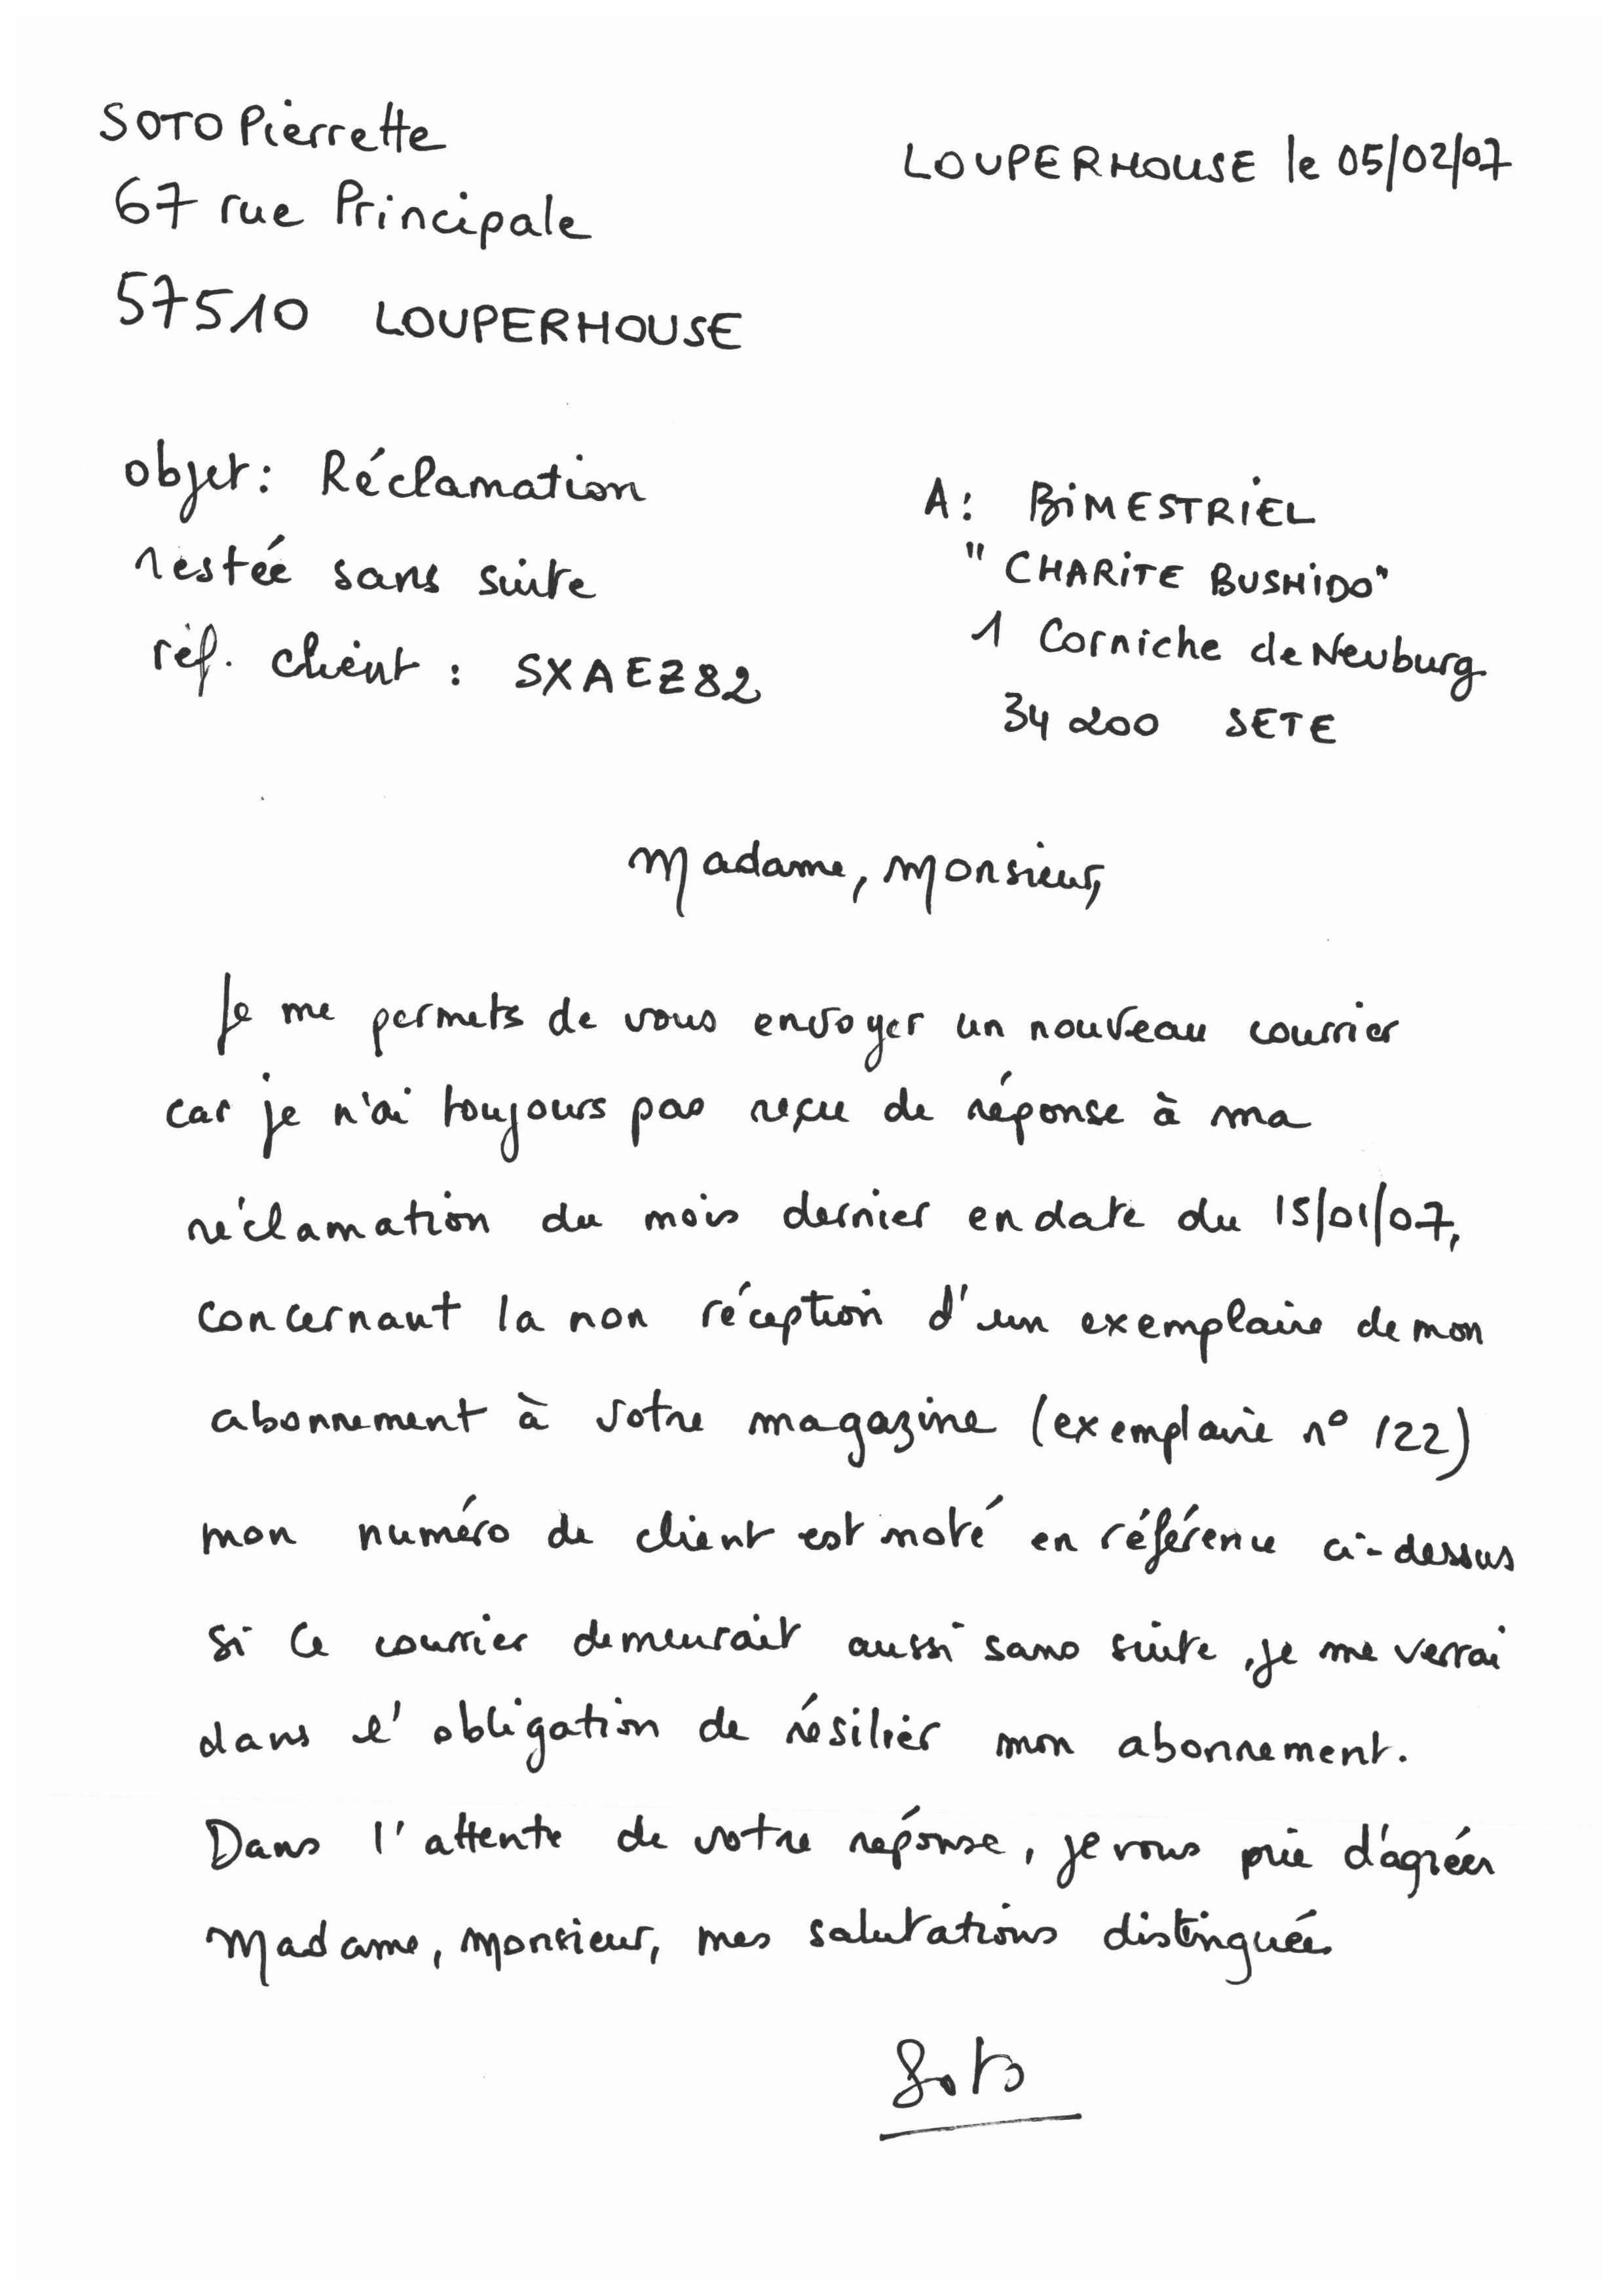 SOTO Pierrette
67 rue Principale
57510 LOUPERHOUSE
LOUPERHOUSE le 05/02/07
objet : Réclamation
restée sans suite
réf. client : SXAEZ82
A : BIMESTRIEL
"CHARITE BUSHIDO"
1 Corniche de Neuburg
34200 SETE
Madame, Monsieur,
Je me permets de vous envoyer un nouveau courrier
car je n'ai toujours pas reçu de réponse à ma
réclamation du mois dernier en date du 15/01/07,
concernant la non réception d'un exemplaire de mon
abonnement à votre magazine (exemplaire n° 122)
mon numéro de client est noté en référence ci-dessus
si ce courrier demeurait aussi sans suite, je me verrai
dans l'obligation de résilier mon abonnement.
Dans l'attente de votre réponse, je vous prie d'agréer
Madame, Monsieur, mes salutations distinguées
Soto